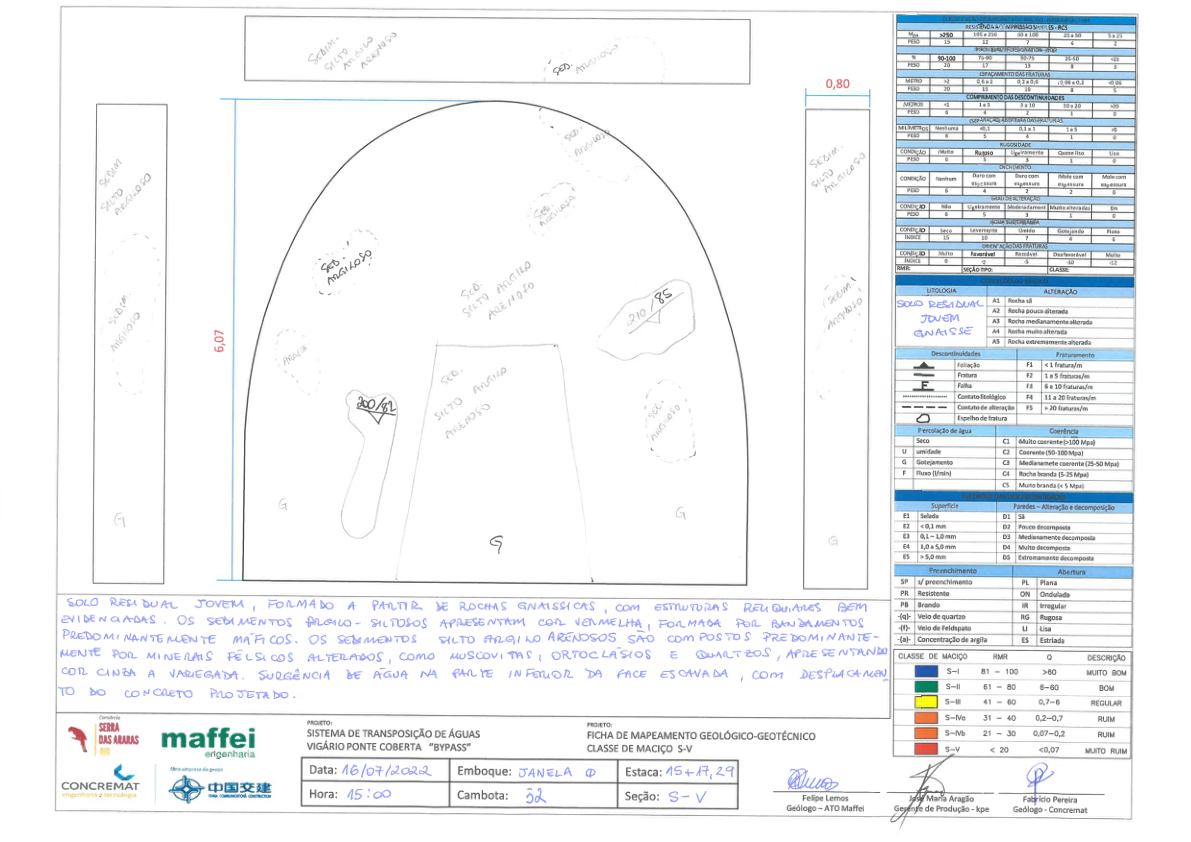 SEDIM.
SILTO
ARGILO
ARENOSO
SED.
ARGILOSO
0,80
SEDIM
SILTO
ARGILOSO
SED.
ARGILOSO
SEDIM.
SILTO ARGILOSO
SED.
ARGILOSO
SED.
ARGILOSO
SED.
SILTO ARGILO
ARENOSO
210/85
SEDIM
ARGILOSO
SEDIM.
ARGILOSO
6,07
ARGILA
SED.
SILTO ARGILO
ARENOSO
200/82
SED.
ARGILOSO
G
G
G
G
G
SOLO RESIDUAL JOVEM, FORMADO A PARTIR DE ROCHAS GNAISSICAS, COM ESTRUTURAS RELIQUIARES BEM
EVIDENCIADAS. OS SEDIMENTOS ARGILO-SILTOSOS APRESENTAM COR VERMELHA, FORMADA POR BANDAMENTOS
PREDOMINANTEMENTE MÁFICOS. OS SEDIMENTOS SILTO ARGILO ARENOSOS SÃO COMPOSTOS PREDOMINANTE-
MENTE POR MINERAIS FÉLSICOS ALTERADOS, COMO MUSCOVITAS, ORTOCLÁSIOS E QUARTZOS, APRESENTANDO
COR CINZA A VARIEGADA. SURGÊNCIA DE ÁGUA NA PARTE INFERIOR DA FACE ESCAVADA, COM DESPLACAMEN-
TO DO CONCRETO PROJETADO.
RESISTÊNCIA A COMPRESSÃO SIMPLES - RCS
MPa >250 100 a 250 50 a 100 25 a 50 5 a 25
PESO 15 12 7 4 2
% 90-100 75-90 50-75 25-50 <25
PESO 20 17 13 8 3
ESPAÇAMENTO DAS FRATURAS
METRO >2 0,6 a 2 0,2 a 0,6 0,06 a 0,2 <0,06
PESO 20 15 10 8 5
COMPRIMENTO DAS DESCONTINUIDADES
METROS <1 1 a 3 3 a 10 10 a 20 >20
PESO 6 4 2 1 0
MILÍMETROS Nenhuma <0,1 0,1 a 1 1 a 5 >5
PESO 6 5 4 1 0
RUGOSIDADE
CONDIÇÃO Muito Rugoso Ligeiramente Quase liso Liso
PESO 6 5 3 1 0
ENCHIMENTO
CONDIÇÃO Nenhum Duro com espessura Duro com espessura Mole com espessura Mole com espessura
PESO 6 4 2 2 0
GRAU DE ALTERAÇÃO
CONDIÇÃO Não Ligeiramente Moderadament Muito alteradas Em
PESO 6 5 3 1 0
ÁGUA SUBTERRÂNEA
CONDIÇÃO Seco Levemente Úmido Gotejando Fluxo
ÍNDICE 15 10 7 4 0
ORIENTAÇÃO DAS FRATURAS
CONDIÇÃO Muito Favorável Razoável Desfavorável Muito
ÍNDICE 0 -2 -5 -10 -12
RMR: SEÇÃO TIPO: CLASSE:
LITOLOGIA ALTERAÇÃO
SOLO RESIDUAL
JOVEM
GNAISSE
A1 Rocha sã
A2 Rocha pouco alterada
A3 Rocha medianamente alterada
A4 Rocha muito alterada
A5 Rocha extremamente alterada
Descontinuidades Fraturamento
Foliação F1 < 1 fratura/m
Fratura F2 1 a 5 fraturas/m
F Falha F3 6 a 10 fraturas/m
Contato litológico F4 11 a 20 fraturas/m
Contato de alteração F5 > 20 fraturas/m
Espelho de fratura
Percolação de água Coerência
Seco C1 Muito coerente (>100 Mpa)
U umidade C2 Coerente (50-100 Mpa)
G Gotejamento C3 Medianamete coerente (25-50 Mpa)
F Fluxo (l/min) C4 Rocha branda (5-25 Mpa)
C5 Muito branda (< 5 Mpa)
Superfície Paredes – Alteração e decomposição
E1 Selada D1 Sã
E2 < 0,1 mm D2 Pouco decomposta
E3 0,1 – 1,0 mm D3 Medianamente decomposta
E4 1,0 a 5,0 mm D4 Muito decomposta
E5 > 5,0 mm D5 Extremamente decomposta
Preenchimento Abertura
SP s/ preenchimento PL Plana
PR Resistente ON Ondulado
PB Brando IR Irregular
-(q)- Veio de quartzo RG Rugosa
-(f)- Veio de Feldspato LI Lisa
-(a)- Concentração de argila ES Estriada
CLASSE DE MACIÇO RMR Q DESCRIÇÃO
S-I 81 – 100 >60 MUITO BOM
S-II 61 – 80 6-60 BOM
S-III 41 – 60 0,7-6 REGULAR
S-IVa 31 – 40 0,2-0,7 RUIM
S-IVb 21 – 30 0,07-0,2 RUIM
S-V < 20 <0,07 MUITO RUIM
Consórcio
SERRA
DAS ARARAS
RIO
maffei
engenharia
CONCREMAT
engenharia e tecnologia
Uma empresa do grupo
中国交建
CHINA COMMUNICATIONS CONSTRUCTION
PROJETO:
SISTEMA DE TRANSPOSIÇÃO DE ÁGUAS
VIGÁRIO PONTE COBERTA "BYPASS"
PROJETO:
FICHA DE MAPEAMENTO GEOLÓGICO-GEOTÉCNICO
CLASSE DE MACIÇO S-V
Data: 16/07/2022 Emboque: JANELA Ø Estaca: 15+17,29
Hora: 15:00 Cambota: 52 Seção: S-V
Felipe Lemos
Geólogo – ATO Maffei
José Maria Aragão
Gerente de Produção - kpe
Fabrício Pereira
Geólogo - Concremat